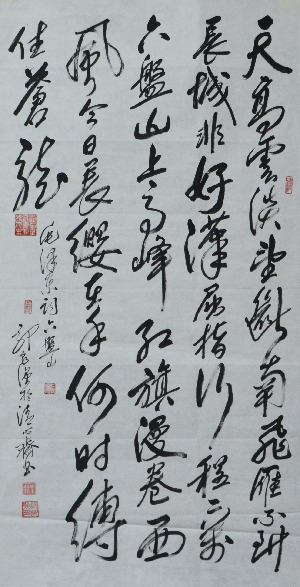 天高雲淡望斷南飛雁不到
長城非好漢屈指行程二萬
六盤山上高峰红旗漫卷西
風今日長纓在手何時縛
住蒼龍
毛澤東詞六盤山
於清心齋書